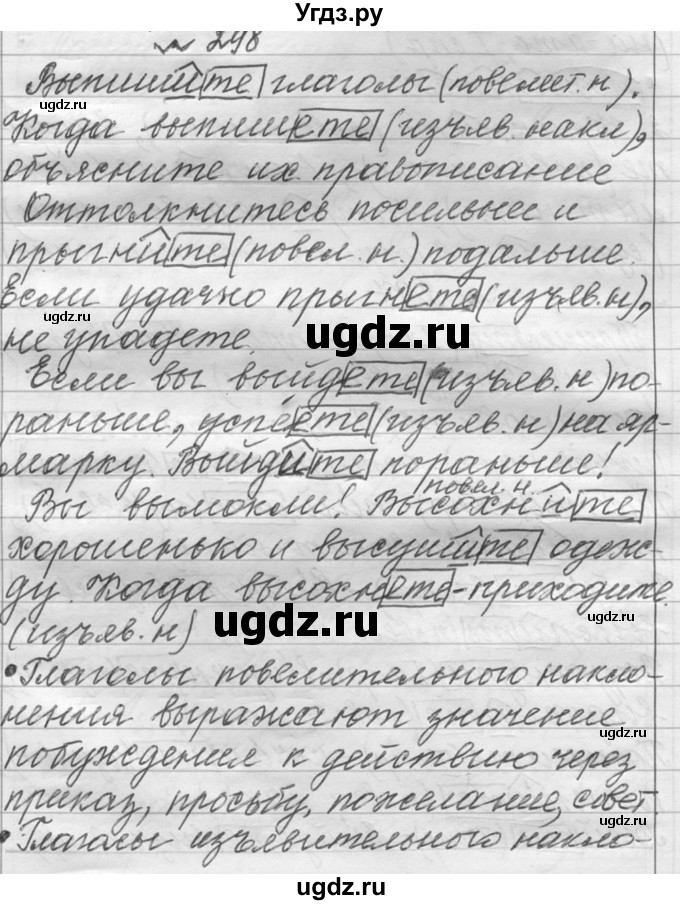 Угдз.ру
№ 298
Выпишите глаголы (повелит. н).
Когда выпишете (изъяв. накл),
объясните их правописание
Оттолкнитесь посильнее и
прыгните (повел. н.) подальше.
Если удачно прыгнете (изъяв. н),
не упадете.
Если вы выйдете (изъяв. н) по-
раньше, успеете (изъяв. н) на яр-
марку. Выйдите пораньше!
повел. н.
Вы вымокли! Высохните
хорошенько и высушите одеж-
ду. Когда высохнете - приходите.
(изъяв. н)
• Глаголы повелительного накло-
нения выражают значение
побуждения к действию через
приказ, просьбу, пожелание, совет.
• Глаголы изъявительного накло-
ugdz.ru
ugdz.ru
ugdz.ru
ugdz.ru
ugdz.ru
ugdz.ru
ugdz.ru
ugdz.ru
ugdz.ru
ugdz.ru